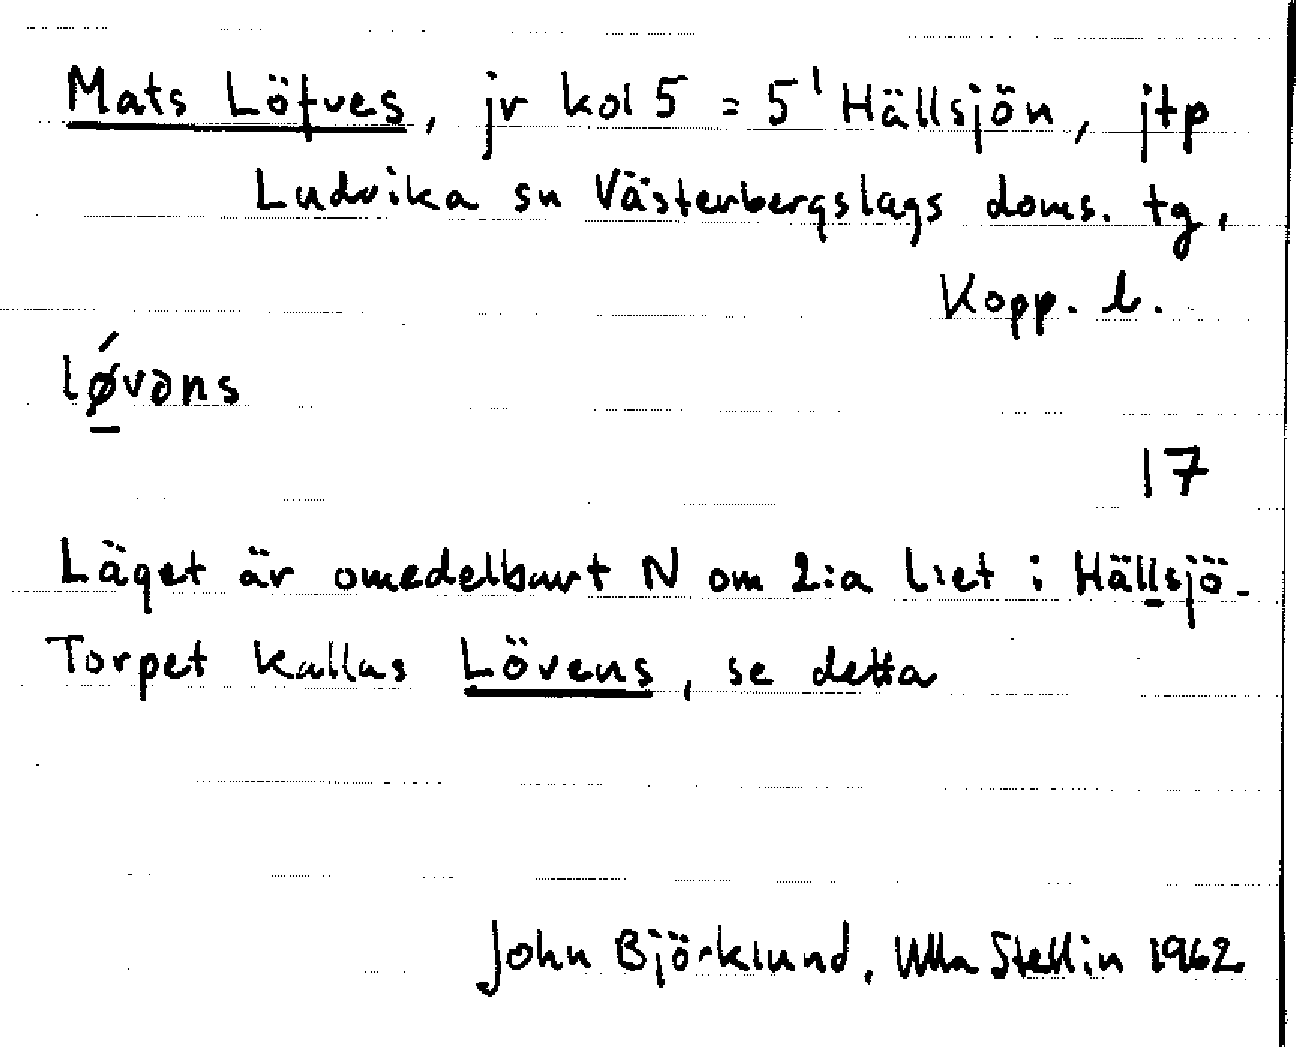 Mats Löfves, jr kol 5 = 5¹ Hällsjön, jtp
Ludvika sn Västerbergslags doms. tg,
Kopp. l.
lǿvəns
17
Läget är omedelbart N om 2:a l:et i Hällsjö-
Torpet kallas Lövens, se detta
John Björklund, Ulla Stellin 1962